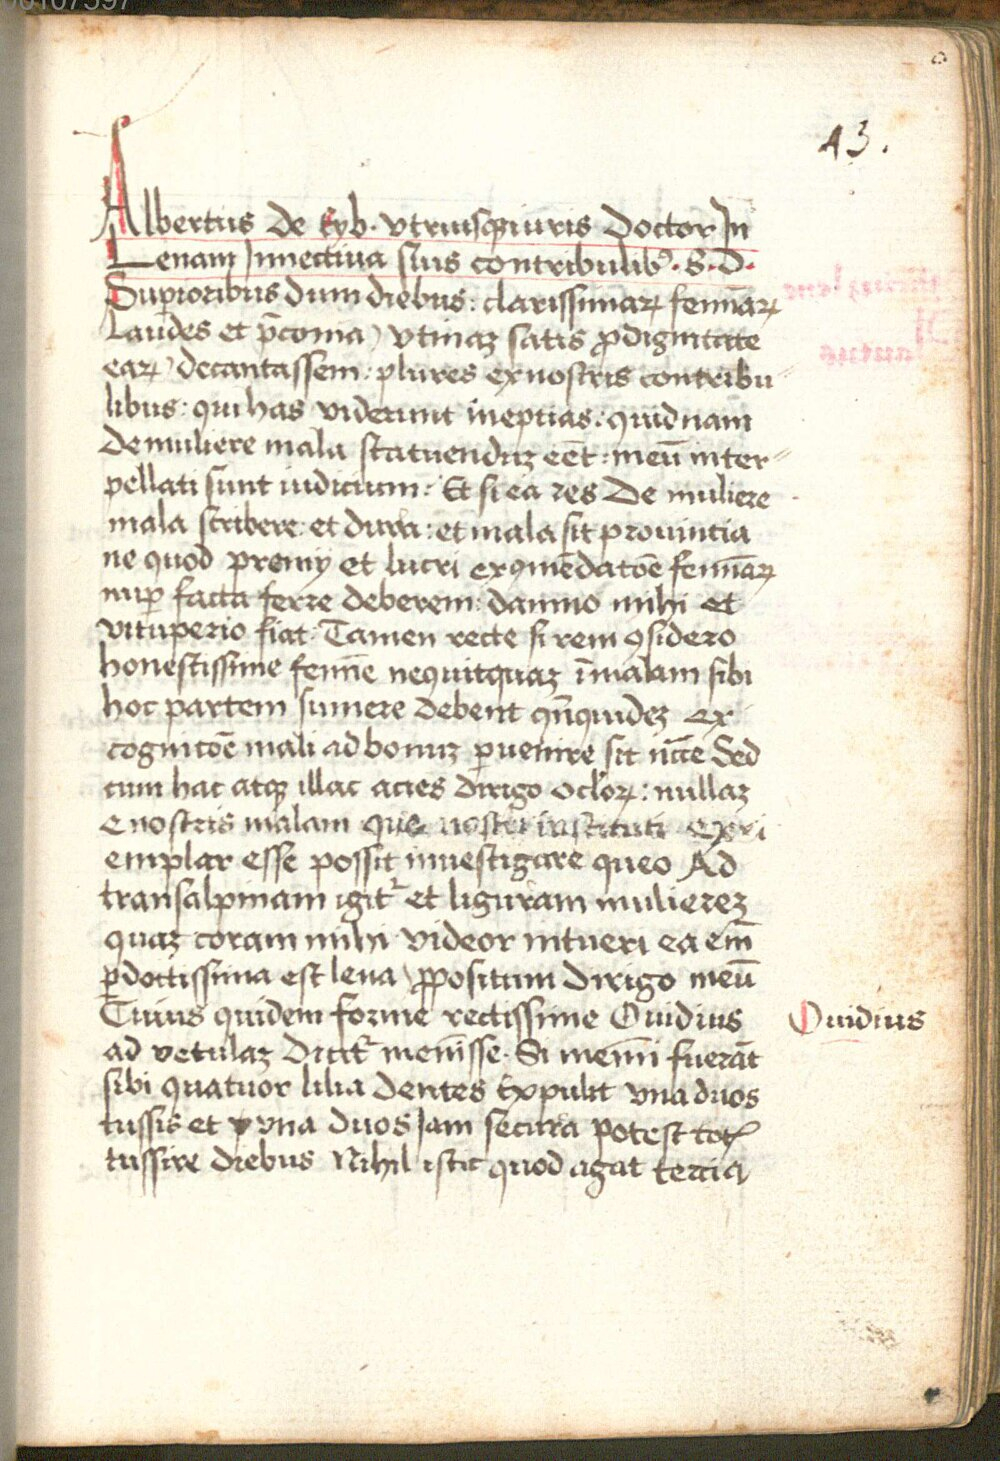 13.
Albertus de Eyb. vtriusq̄ iuris doctor In
Lenam Inuectiua suis contribulibꝰ. S. D.
Supioribus dum diebus: clarissimaꝝ feminaꝝ
laudes et p̄conia) vtinaꝫ satis ꝓ dignitate
eaꝝ) decantassem: plures ex nostris contribu⸗
libus: qui has viderunt ineptias: quidnam
de muliere mala statuenduꝫ eēt: meū inter⸗
pellati sunt iudicium: Et si ea res de muliere
mala scribere et dura: et mala sit prouintia
ne quod premy et lucri ex ꝯmēdatōe feminaꝝ
nup̄ facta ferre deberem: damno mihi et
vituperio fiat: Tamen recte si rem ꝯsidero
honestissime femīe nequitquaꝫ ī malam sibi
hoc partem sumere debent qn̄quideꝫ ex
cognitōe mali ad bonuꝫ ꝑuenire sit nc̄c̄e Sed
cum hac atqꝫ illac acies dirigo oc̄loꝝ: nullaꝫ
e nostris malam que nostri instituti
emplar esse possit inuestigare queo Ad
transalpinam igit᷑ et liguram muliereꝫ
quaꝫ coram mihi videor intueri ea em̄
ꝑdoctissima est lena ꝓpositum dirigo meū
Cuius quidem forme rectissime Ouidius
Ouidius
ad vetulaꝫ dicit᷑ menisse. Si memī fuerāt
sibi quatuor lilia dentes Expulit vna duos
tussis et vna duos Jam secura potest totꝭ
tussire diebus Nihil istic quod agat tercia